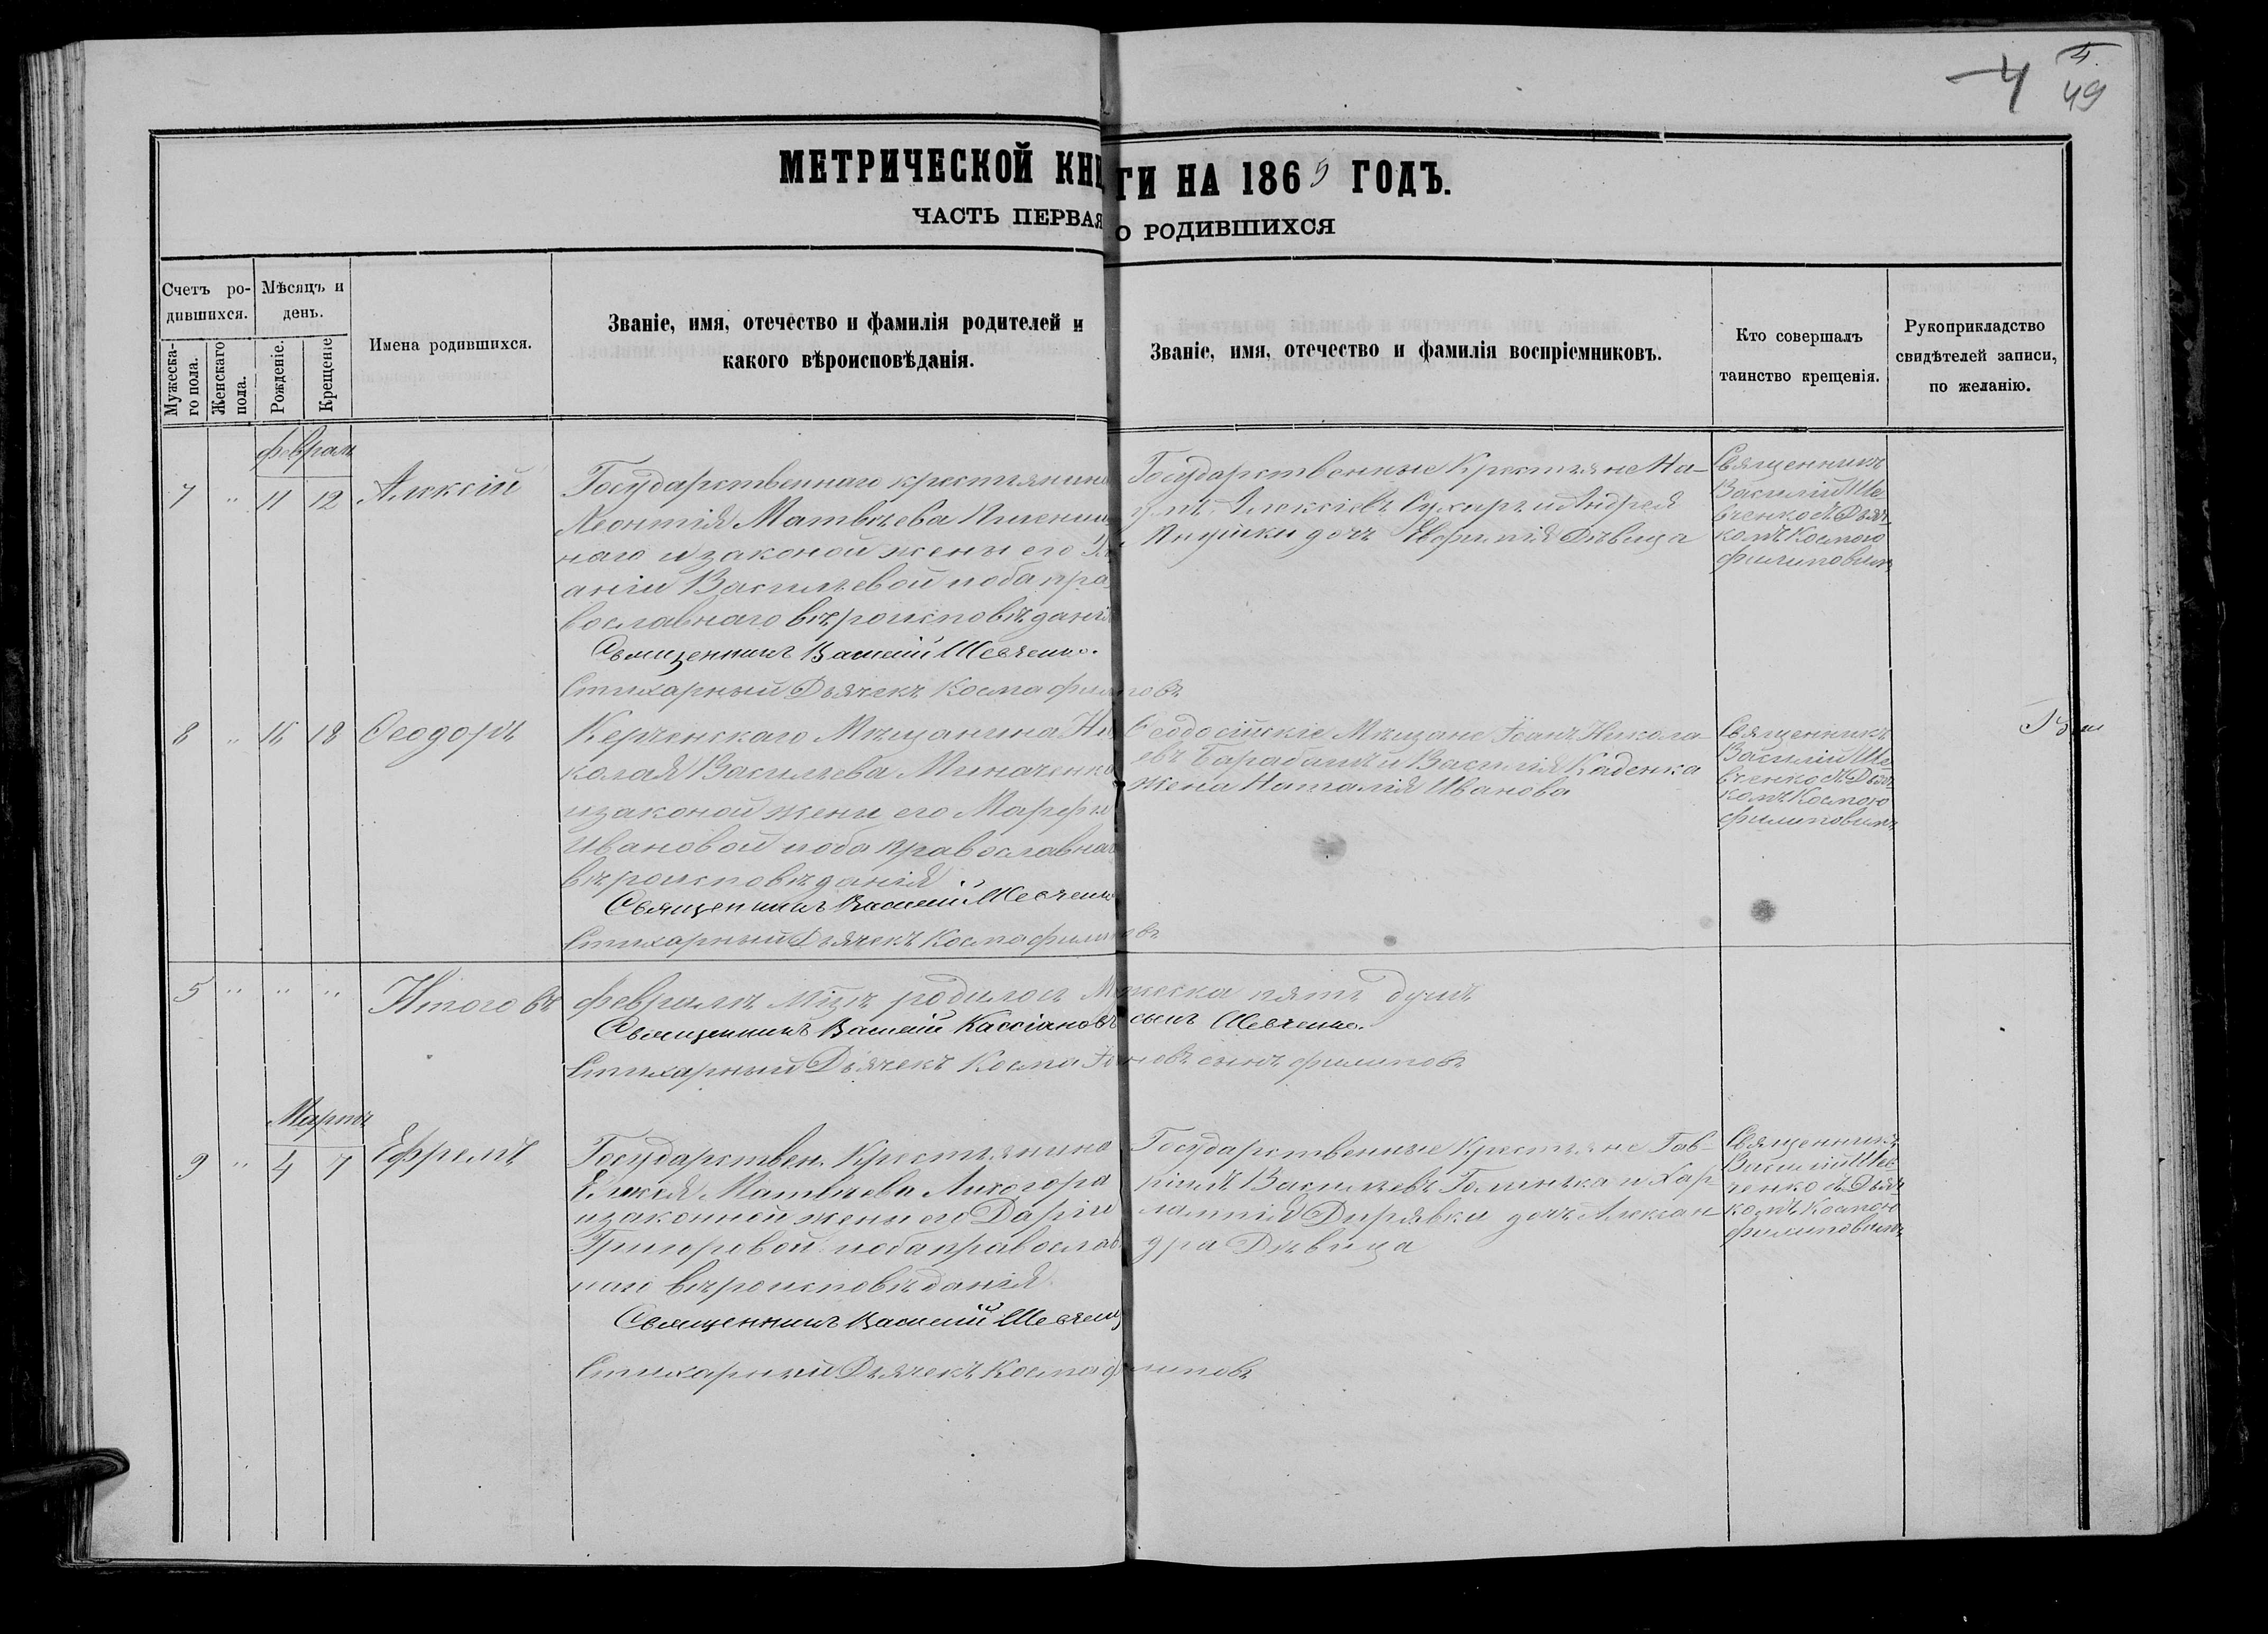 4
4.
49
МЕТРИЧЕСКОЙ КНИГИ НА 1865 ГОДЪ.
ЧАСТЬ ПЕРВАЯ О РОДИВШИХСЯ
Счетъ ро-
дившихся.
Мужеска-
го пола.
Женскаго
пола.
Мѣсяцъ и
день.
Рожденіе.
Крещеніе
Имена родившихся.
Званіе, имя, отечество и фамилія родителей и
какого вѣроисповѣданія.
Званіе, имя, отечество и фамилія воспріемниковъ.
Кто совершалъ
таинство крещенія.
Рукоприкладство
свидѣтелей записи,
по желанію.
Февраль
7 " 11 12 Алексій
Государственнаго крестьянина
Леонтія Матвѣева
наго и законой жены его
аніи Васильевой оба пра
вославнаго вѣроисповѣданія
Священникъ Василій Шевченко.
Стихарный Дьячекъ Косма Филиповъ
Государственные Крестьяне На-
умъ Алексіевъ и Андрея
дочь Евфимія Дѣвица
Священникъ
Василій Ше-
вченко съ Дьяч-
комъ Космою
Филиповымъ
8 " 16 18 Феодоръ
Керченскаго Мѣщанина Ни
колая Васильева Миначенко
и законой жены его Марфы
Ивановой оба православнаго
вѣроисповѣданія
Священникъ Василій Шевченко
Стихарный Дьячекъ Косма Филиповъ
Феодосійскіе Мѣщане Іоанъ Никола-
евъ Барабашъ и Василія Каденка
жена Наталія Иванова
Священникъ
Василій Ше-
вченко съ Дьяч-
комъ Космою
Филиповымъ
5 " " " Итого въ Февралѣ М҃цѣ родилось Мужеска пять душъ
Священникъ Василій Кассіановъ сынъ Шевченко.
Стихарный Дьячекъ Косма Іоановъ сынъ Филиповъ
Мартъ
9 " 4 7 Ефремъ
Государствен. Крестьянина
Матвѣева Лихогора
и законной жены его Даріи
Григоревой оба православ
наго вѣроисповѣданія
Священникъ Василій Шевченко
Стихарный Дьячекъ Косма Филиповъ
Государственные Крестьяне Гав-
ріилъ Васильевъ и Хар-
лампія Дирявки дочь Алексан-
дра Дѣвица
Священникъ
Василій Шев-
ченко съ Дьяч-
комъ Космою
Филиповымъ